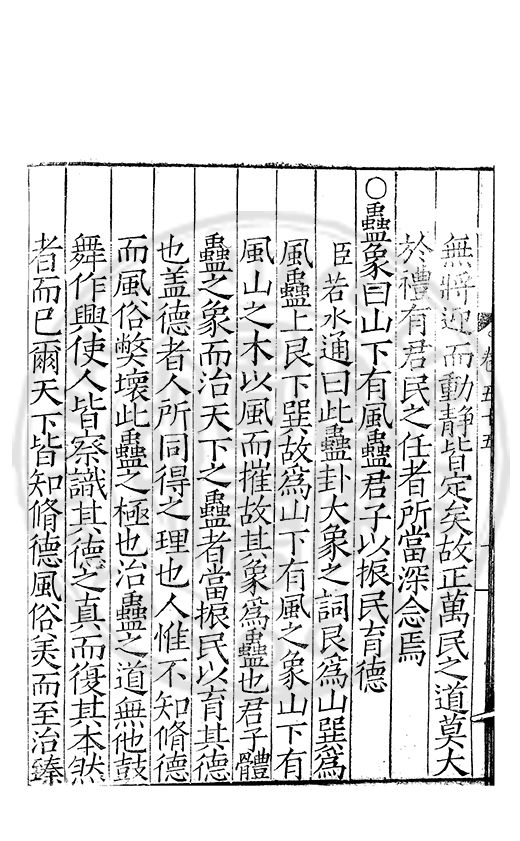 無將迎而動靜皆定矣故正萬民之道莫大
於禮有君民之任者所當深念焉
○蠱象曰山下有風蠱君子以振民育德
臣若水通曰此蠱卦大象之詞艮爲山巽爲
風蠱上艮下巽故爲山下有風之象山下有
風山之木以風而摧故其象爲蠱也君子體
蠱之象而治天下之蠱者當振民以育其德
也盖德者人所同得之理也人惟不知脩德
而風俗獘壞此蠱之極也治蠱之道無他鼓
舞作興使人皆察識其德之真而復其本然
者而已爾天下皆知脩德風俗美而至治臻
卷五十五